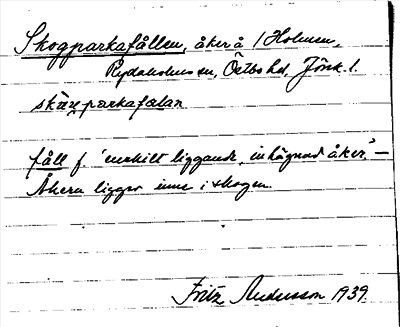 Skogparkafållen, åker å /Holmen,
Rydaholms sn, Östbo hd, Jönk. l.
skäu̯parkafalan
fåll f. 'enskilt liggande, inhägnad åker.' —
Åkern ligger inne i skogen.
Fritz Andersson 1939.